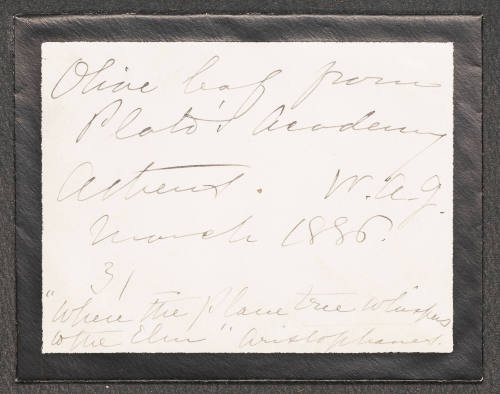 Olive leaf from
Plato's Academy
Athens. W.A.G.
March 1886.
31
"Where the Plane tree whispers
to the Elm" Aristophanes.